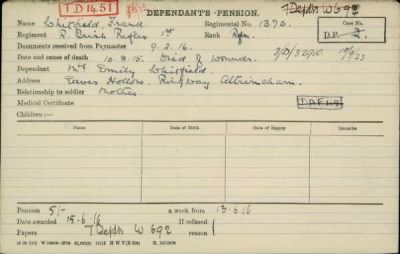 T D 14.51
7/Depdts W 692
DEPENDANT'S PENSION.
Name Whitfield, Frank Regimental No. 1370.
Case No.
Regiment R. Irish Rifles 1st Rank Rfn.
D.P. 2.
Documents received from Paymaster 9.2.16.
Date and cause of death 10.8.15. Died of wounds.
Dependant Mrs Emily Whitfield.
Address Eaves Hollow, Ringway Altrincham.
Relationship to soldier Mother.
Medical Certificate
Children:—
Name Date of Birth. Date of Expiry. Remarks
Pension 5/- a week from 13.6.16
Date awarded 15.6.16 If refused
Papers 7/Depdts W 692 reason